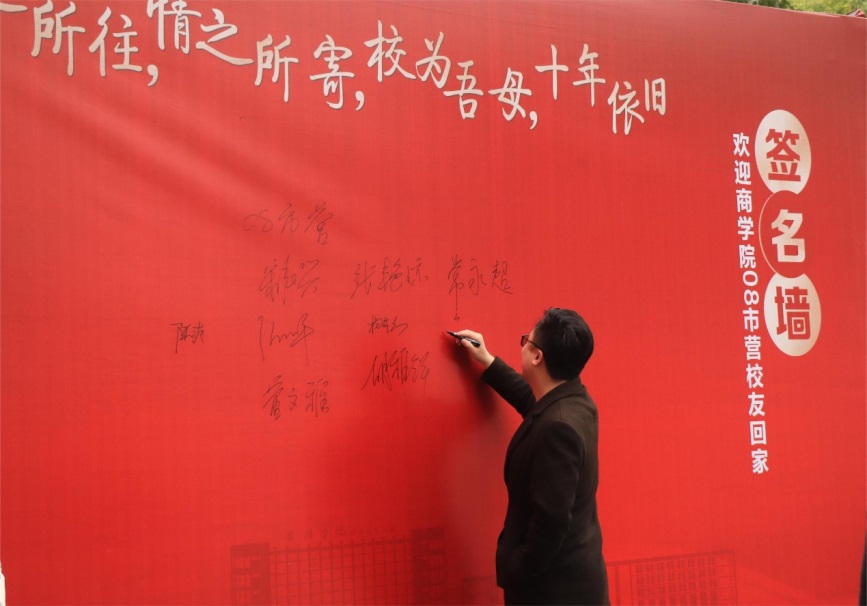 所往，情之所寄，校为吾母，十年依旧
签名墙
欢迎商学院08市营校友回家
08市营
张艳 常永超
曹文雅